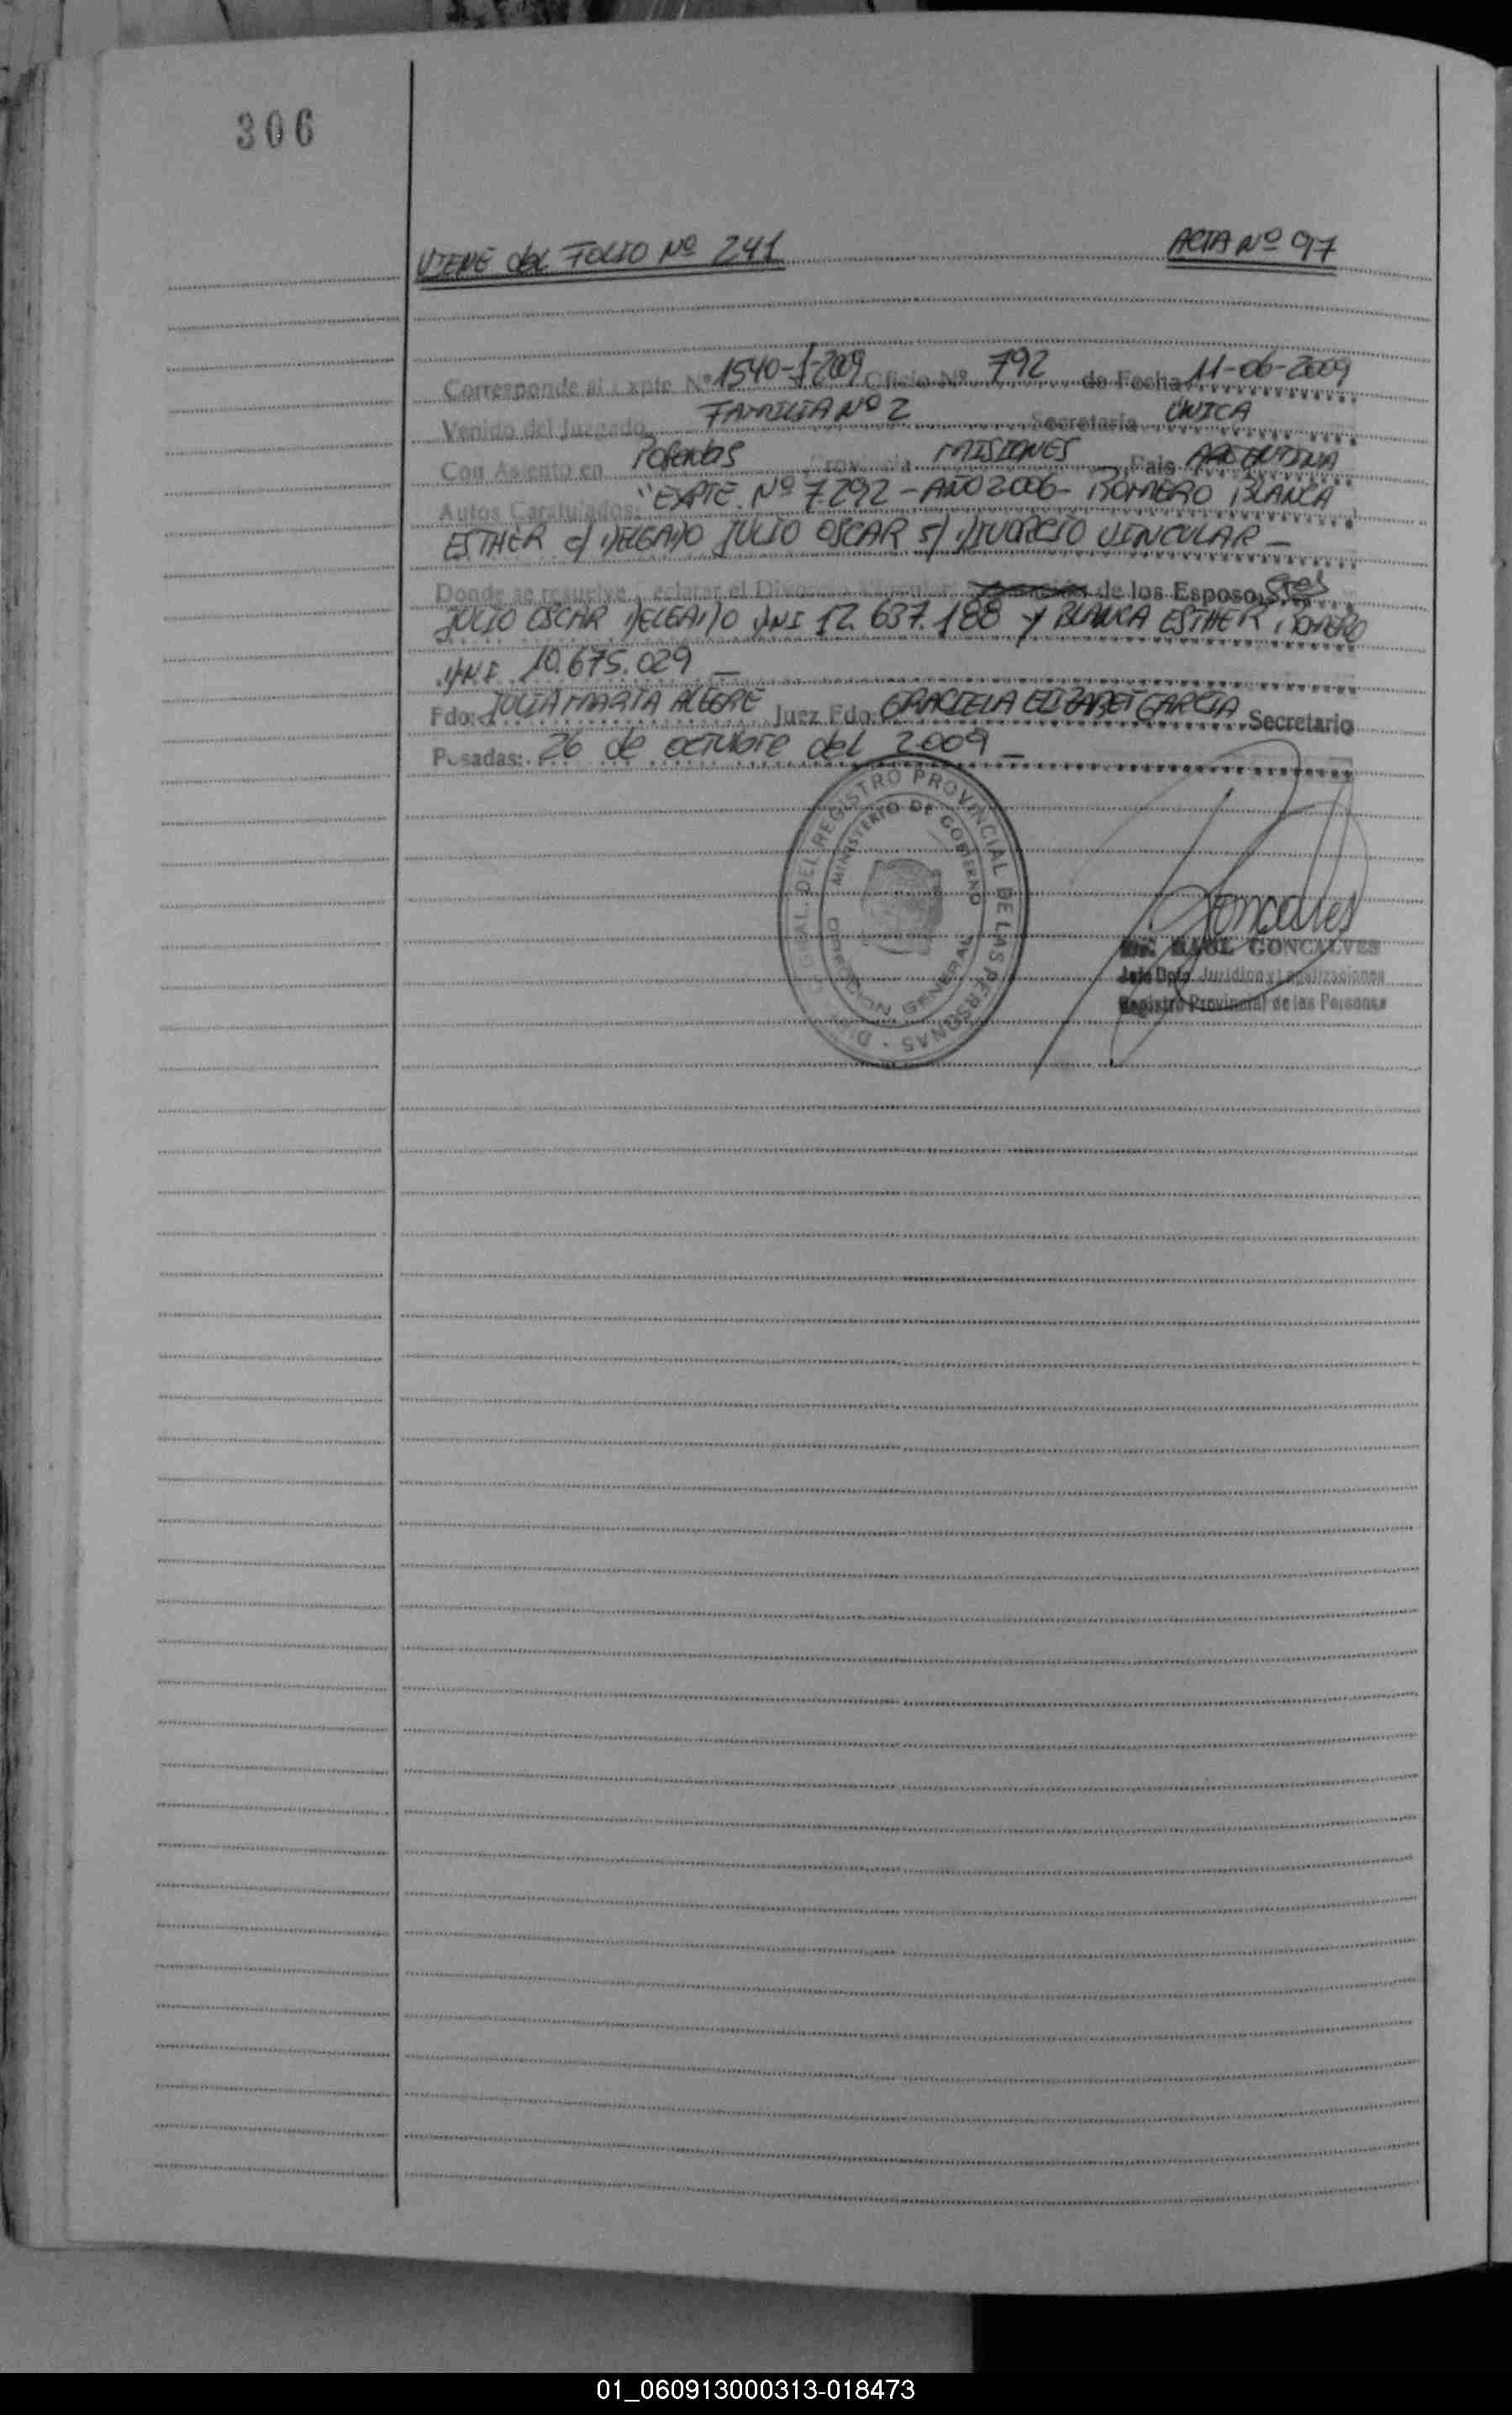 306
VIENE del FOLIO Nº 241 ACTA Nº 97
Corresponde al Expte. Nº 1540-J-2009 Oficio Nº 792 de Fecha 11-06-2009
Venido del Juzgado FAMILIA Nº 2 Secretaría UNICA
Con Asiento en Posadas Provincia MISIONES País ARGENTINA
Autos Caratulados: "EXPTE. Nº 7.292 - AÑO 2006 - ROMERO BLANCA
ESTHER c/ DELGADO JULIO OSCAR s/ DIVORCIO VINCULAR -
Donde se resuelve Declarar el Divorcio Vincular de los Esposos
JULIO OSCAR DELGADO DNI 12.637.188 y BLANCA ESTHER ROMERO
DNI 10.675.029 -
Fdo: JULIA MARTA ALEGRE Juez Fdo: GRACIELA ELIZABET GARCIA Secretario
Posadas: 26 de octubre del 2009 -
DEL REGISTRO PROVINCIAL DE LAS PERSONAS
MINISTERIO DE GOBIERNO
DIRECCION GENERAL
Goncalves
GONCALVES
Jefe Dpto. Jurídico y Legalizaciones
Registro Provincial de las Personas
01_060913000313-018473